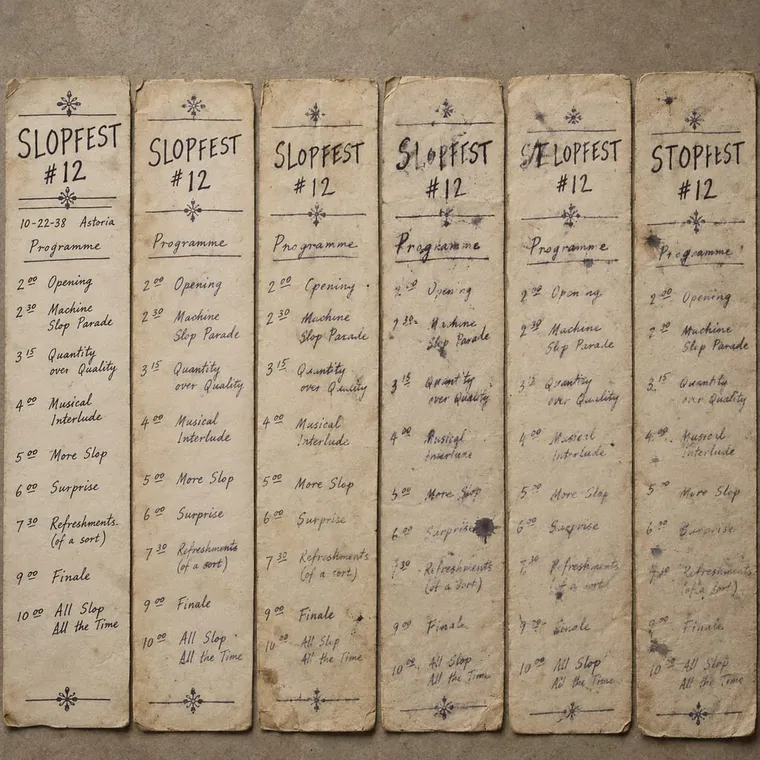 SLOPFEST
#12
10-22-38 Astoria
Programme
2 00 Opening
2 30 Machine
Slop Parade
3 15 Quantity
over Quality
4 00 Musical
Interlude
5 00 More Slop
6 00 Surprise
7 30 Refreshments.
(of a sort)
9 00 Finale
10 00 All Slop
All the Time
SLOPFEST
#12
Programme
2 00 Opening
2 30 Machine
Slop Parade
3 15 Quantity
over Quality
4 00 Musical
Interlude
5 00 More Slop
6 00 Surprise
7 30 Refreshments
(of a sort)
9 00 Finale
10 00 All Slop
All the Time
SLOPFEST
#12
Programme
2 00 Opening
2 30 Machine
Slop Parade
3 15 Quantity
over Quality
4 00 Musical
Interlude
5 00 More Slop
6 00 Surprise
7 30 Refreshments
(of a sort)
9 00 Finale
10 00 All Slop
All the Time
SLOPFEST
#12
Programme
Slop Parade
3 15 Quantity
over Quality
4 00 Musical
5 00 More Slop
6 00 Surprise
7 30 Refreshments
(of a sort)
9 00 Finale
10 00 All Slop
All the Time
LOPFEST
#12
Programme
2 00
2 30 Machine
Slop Parade
Quantity
over Quality
4 00
5 More Slop
6 00
Refreshments
of a sort
10 00 All Slop
All the Time
STOPFEST
#12
Programme
2 00 Opening
Machine
Slop Parade
15 Quantity
over Quality
4 00
Interlude
5 More Slop
6 Surprise
Refreshments
(of a sort)
Finale
10 All Slop
All the Time